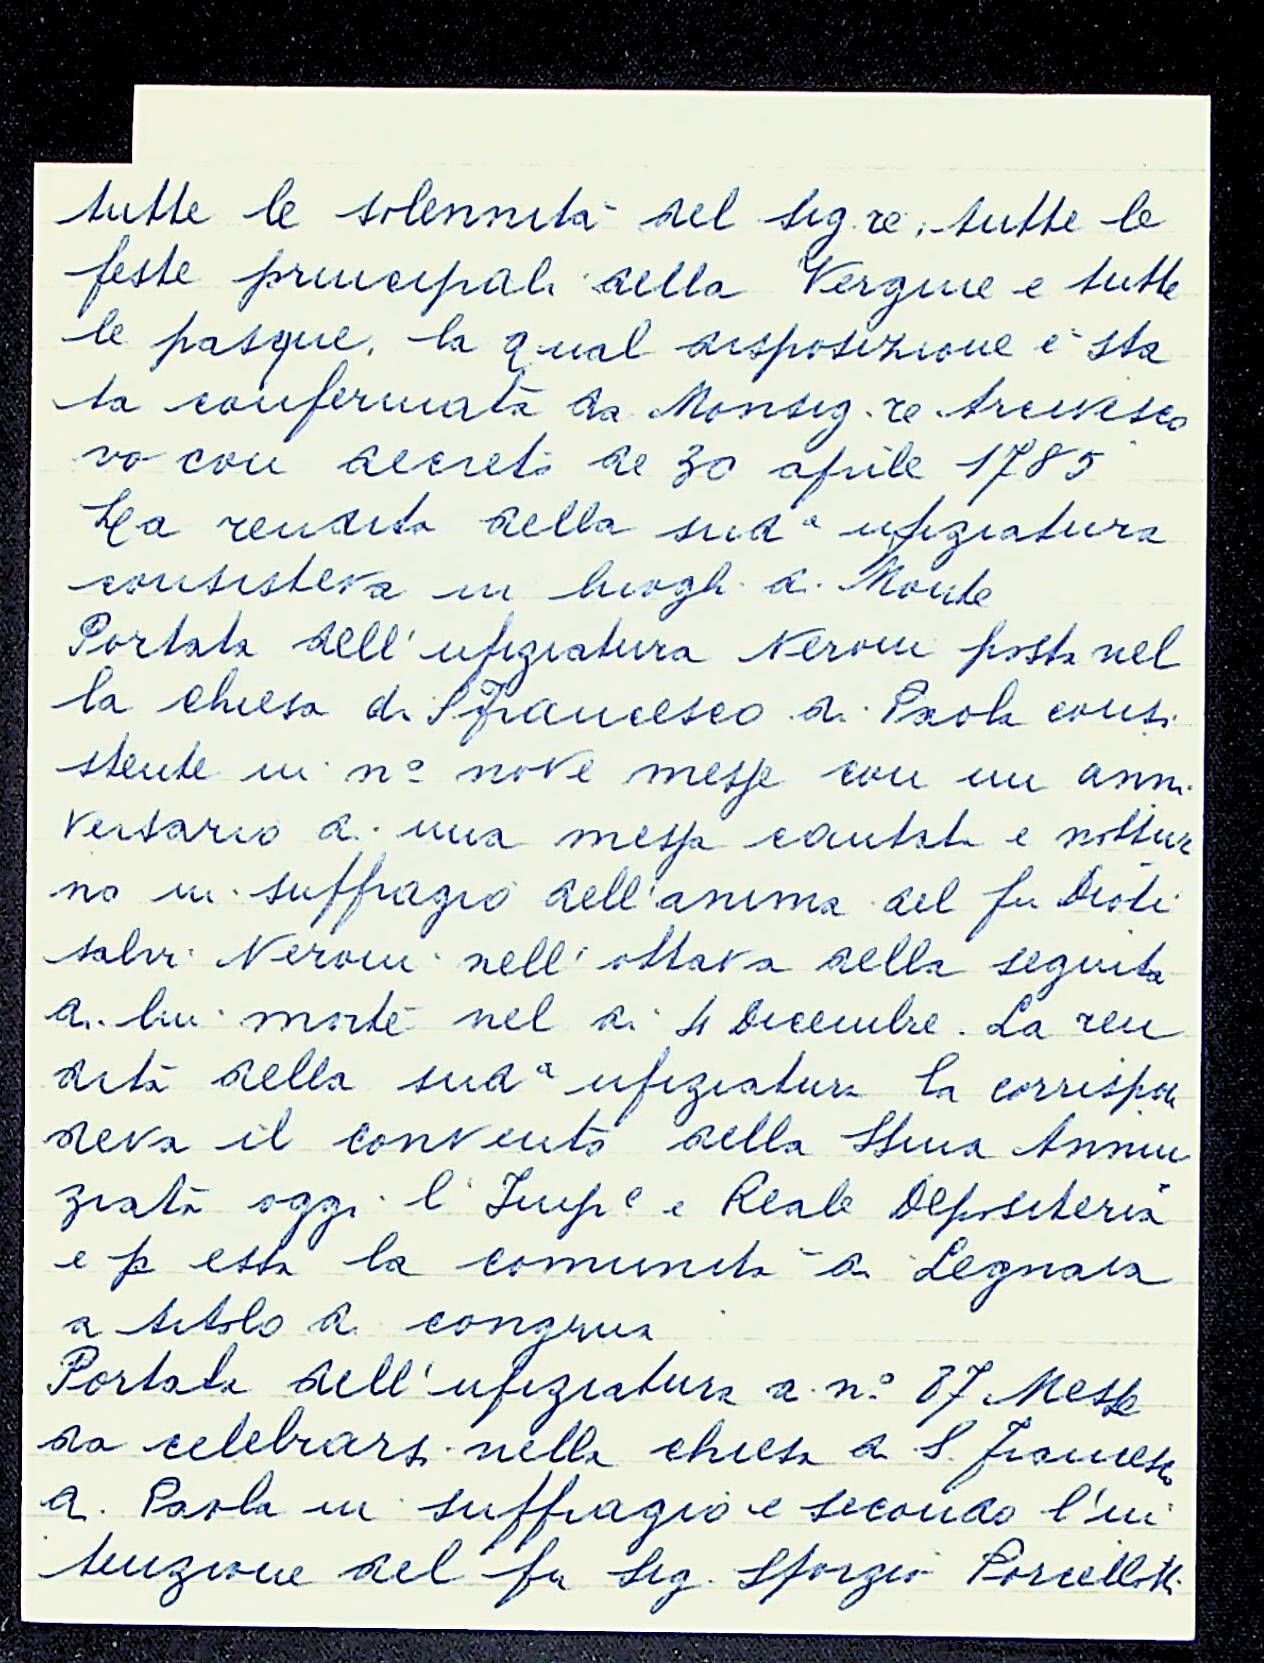 tutte le solennità del Sig.re, tutte le
feste principali della Vergine e tutte
le pasque, la qual disposizione è sta
ta confermata da Monsig.re Arcivesco
vo con decreto de 30 aprile 1785
La rendita della sud.ª ufiziatura
consisteva in luoghi di Monte
Portata dell'ufiziatura Neroni posta nel
la chiesa di S. Francesco di Paola consi
stente in n.º nove messe con un anni
versario di una messa cantata e nottur
no in suffragio dell'anima del fu Dioti
salvi Neroni nell'ottava della seguita
di lui morte nel di 4 Dicembre. La ren
dita della sud.ª ufiziatura la corrispon
deva il convento della SS.ma Annun
ziata oggi l'Imp.e e Reale Depositeria
e p essa la comunità di Legnaia
a titolo di congrua
Portata dell'ufiziatura a n.º 87 Messe
da celebrarsi nella chiesa di S. Francesco
di Paola in suffragio e secondo l'in
tenzione del fu Sig. Sforzio Porcellotti